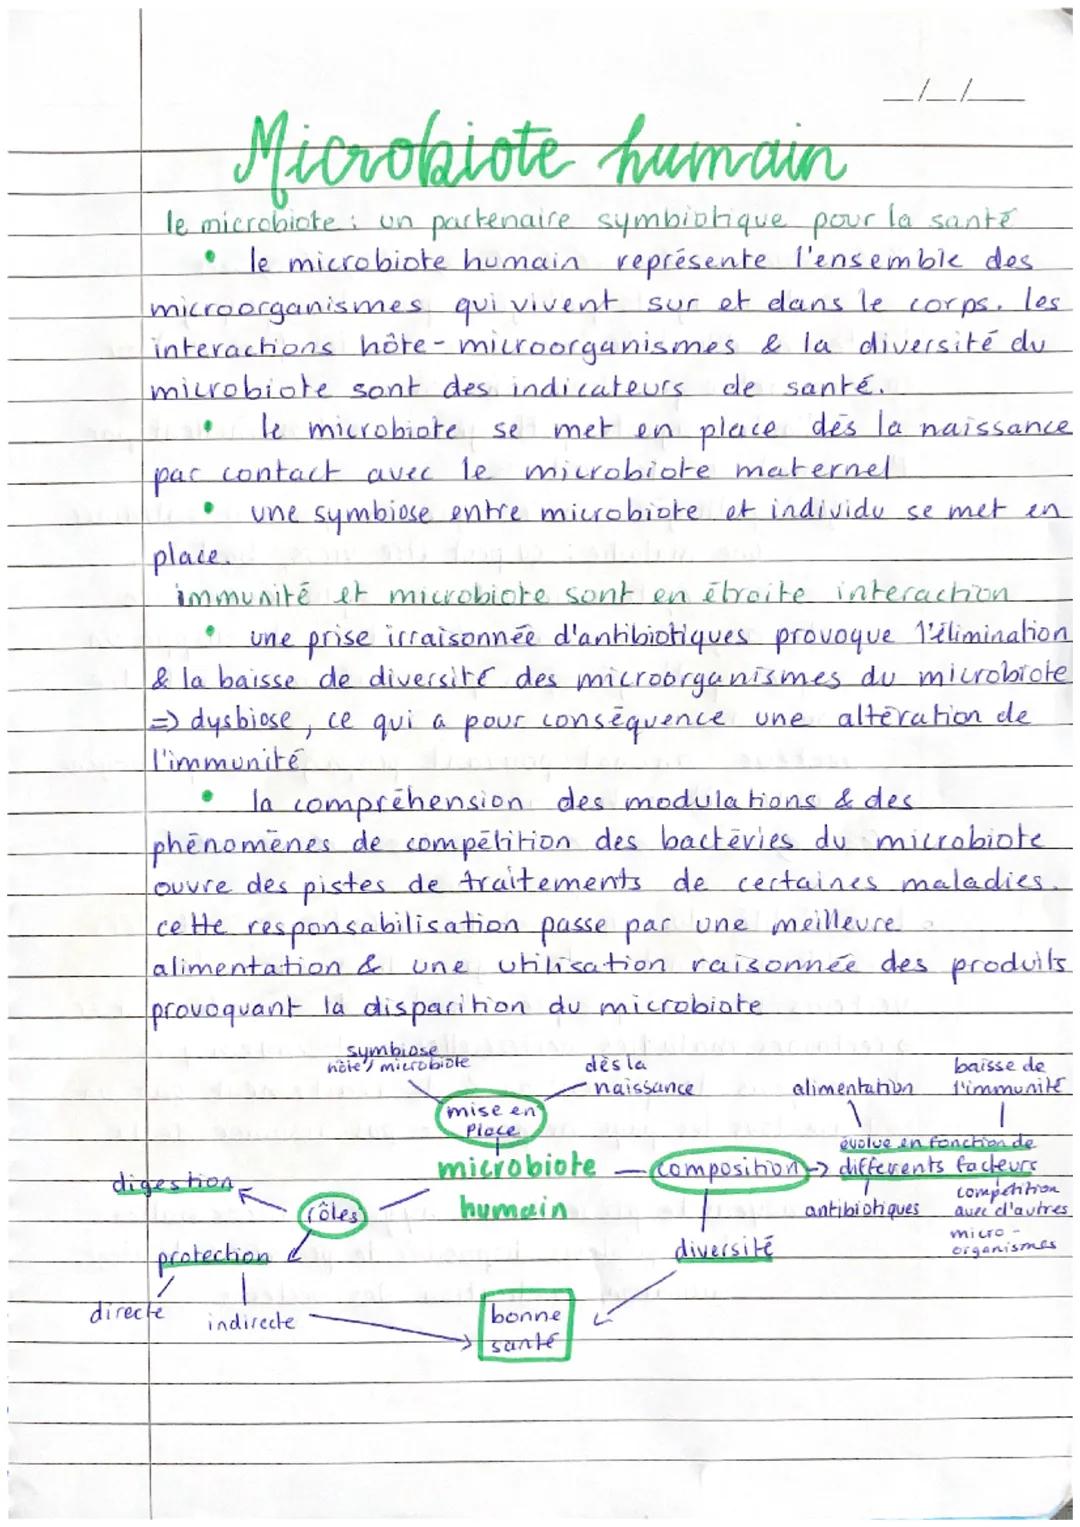 _/_/_
Microbiote humain
le microbiote : un partenaire symbiotique pour la santé
• le microbiote humain représente l'ensemble des
microorganismes qui vivent sur et dans le corps. les
interactions hôte-microorganismes & la diversité du
microbiote sont des indicateurs de santé.
• le microbiote se met en place dès la naissance
par contact avec le microbiote maternel
• une symbiose entre microbiote et individu se met en
place.
immunité et microbiote sont en étroite interaction
• une prise irraisonnée d'antibiotiques provoque l'élimination
& la baisse de diversité des microorganismes du microbiote
=> dysbiose, ce qui a pour conséquence une altération de
l'immunité
• la compréhension des modulations & des
phénomènes de compétition des bactéries du microbiote
ouvre des pistes de traitements de certaines maladies.
cette responsabilisation passe par une meilleure
alimentation & une utilisation raisonnée des produits
provoquant la disparition du microbiote
symbiose
hôte/microbiote
dès la
naissance
mise en
place
alimentation
baisse de
l'immunité
microbiote
humain
composition
évolue en fonction de
différents facteurs
antibiotiques
compétition
avec d'autres
micro-
organismes
diversité
rôles
digestion
protection
directe
indirecte
bonne
santé